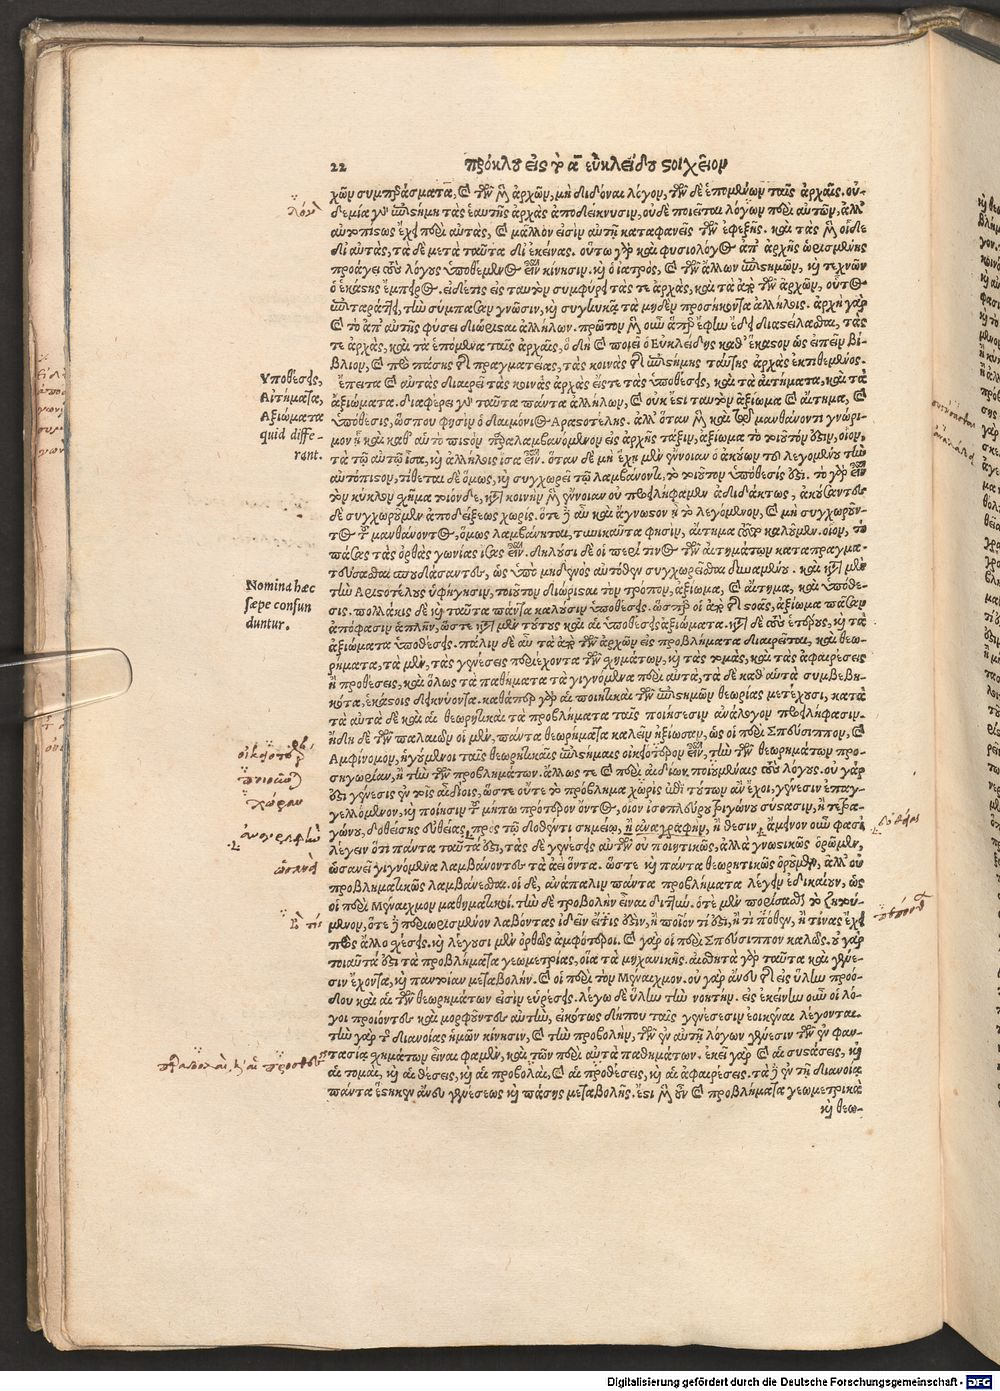 22 πρόκλου εἰς τὸ α εὐκλείδου στοιχεῖον
χῶν συμπεράσματα, καὶ τῶν μὲν ἀρχῶν, μὴ διδόναι λόγον, τῶν δὲ ἑπομένων ταῖς ἀρχαῖς. οὐ-
δεμία γὰρ ἐπιστήμη τὰς ἑαυτῆς ἀρχὰς ἀποδείκνυσιν, οὐδὲ ποιεῖται λόγων περὶ αὐτῶν, ἀλλ'
αὐτοπίστως ἔχει περὶ αὐτάς, καὶ μᾶλλον εἰσὶν αὐτῇ καταφανεῖς τῶν ἐφεξῆς. καὶ τὰς μὲν οἶδε
δι' αὐτάς, τὰ δὲ μετὰ ταῦτα δι' ἐκείνας. οὕτω γὰρ καὶ φυσιολόγος ἀπ' ἀρχῆς ὡρισμένης
προάγει τοὺς λόγους ὑποθέμενος εἶναι κίνησιν. καὶ ὁ ἰατρός, καὶ τῶν ἄλλων ἐπιστημῶν, καὶ τεχνῶν
ὁ ἑκάστης ἔμπειρος. εἰ δέ τις εἰς ταυτὸν συμφύρει τάς τε ἀρχάς, καὶ τὰ ἀπὸ τῶν ἀρχῶν, οὗτος
ἐπιταράττει, τὴν σύμπασαν γνῶσιν, καὶ συγκυκᾷ τὰ μηδὲν προσήκοντα ἀλλήλοις. ἀρχὴ γὰρ
καὶ τὸ ἀπ' αὐτῆς φύσει διώρισται ἀλλήλων. πρῶτον μὲν οὖν ὅπερ ἔφην ἔδει διαστείλασθαι, τάς
τε ἀρχάς, καὶ τὰ ἑπόμενα ταῖς ἀρχαῖς, ὃ δὴ καὶ ποιεῖ ὁ Εὐκλείδης καθ' ἕκαστον ὡς εἰπεῖν βι-
βλίον, καὶ πρὸ πάσης τῆς πραγματείας, τὰς κοινὰς τῆς ἐπιστήμης ταύτης ἀρχὰς ἐκτιθέμενος.
ἔπειτα καὶ αὐτὰς διαιρεῖ τὰς κοινὰς ἀρχὰς εἴς τε τὰς ὑποθέσεις, καὶ τὰ αἰτήματα, καὶ τὰ
ἀξιώματα. διαφέρει γὰρ ταῦτα πάντα ἀλλήλων, καὶ οὐκ ἔστι ταυτὸν ἀξίωμα καὶ αἴτημα, καὶ
ὑπόθεσις, ὥς που φησὶν ὁ δαιμόνιος Αριστοτέλης. ἀλλ' ὅταν μὲν καὶ τῷ μανθάνοντι γνώρι-
μον ᾖ καὶ καθ' αὑτὸ πιστὸν παραλαμβανόμενον εἰς ἀρχῆς τάξιν, ἀξίωμα τὸ τοιοῦτον ἐστιν, οἷον,
τὰ τῷ αὐτῷ ἴσα, καὶ ἀλλήλοις ἴσα εἶναι. ὅταν δὲ μὴ ἔχῃ μὲν ἔννοιαν ὁ ἀκούων τοῦ λεγομένου τὴν
αὐτόπιστον, τίθεται δὲ ὅμως, καὶ συγχωρεῖ τῷ λαμβάνοντι, τὸ τοιοῦτον ὑπόθεσίς ἐστι. τὸ γὰρ εἶναι
τὸν κύκλον σχῆμα τοιόνδε, κατὰ κοινὴν μὲν ἔννοιαν οὐ προειλήφαμεν ἀδιδάκτως, ἀκούσαντες
δὲ συγχωροῦμεν ἀποδείξεως χωρίς. ὅτε δ' αὖ καὶ ἄγνωστον ᾖ τὸ λεγόμενον, καὶ μὴ συγχωροῦν-
τος τοῦ μανθάνοντος, ὅμως λαμβάνηται, τηνικαῦτα φησίν, αἴτημα τοῦτο καλοῦμεν. οἷον, τὸ
πάσας τὰς ὀρθὰς γωνίας ἴσας εἶναι. δηλοῦσι δὲ οἱ περί τινος τῶν αἰτημάτων καταπραγμα-
τεύσασθαι σπουδάσαντες, ὡς ὑπὸ μηδενὸς αὐτόθεν συγχωρεῖσθαι δυναμένου. καὶ κατὰ μὲν
τὴν Αριστοτέλους ὑφήγησιν, τοῦτον διώρισται τὸν τρόπον, ἀξίωμα, καὶ αἴτημα, καὶ ὑπόθε-
σις. πολλάκις δὲ καὶ ταῦτα πάντα καλοῦσιν ὑποθέσεις. ὥσπερ οἱ ἀπὸ τῆς στοᾶς, ἀξίωμα πᾶσαν
ἀπόφασιν ἁπλῆν, ὥστε κατὰ μὲν τούτους καὶ αἱ ὑποθέσεις ἀξιώματα. κατὰ δὲ τοὺς ἑτέρους, καὶ τὰ
ἀξιώματα ὑποθέσεις. πάλιν δὲ αὖ τὰ ἀπὸ τῶν ἀρχῶν εἰς προβλήματα διαιρεῖται, καὶ θεω-
ρήματα, τὰ μὲν, τὰς γενέσεις περιέχοντα τῶν σχημάτων, καὶ τὰς τομάς, καὶ τὰς ἀφαιρέσεις
ἢ προθέσεις, καὶ ὅλως τὰ παθήματα τὰ γιγνόμενα περὶ αὐτά, τὰ δὲ καθ' αὑτὰ συμβεβη-
κότα, ἑκάστοις δεικνύοντα. καθάπερ γὰρ αἱ ποιητικαὶ τῶν ἐπιστημῶν θεωρίας μετέχουσι, κατὰ
τὰ αὐτὰ δὲ καὶ αἱ θεωρητικαὶ τὰ προβλήματα ταῖς ποιήσεσιν ἀνάλογον προειλήφασιν.
ἤδη δὲ τῶν παλαιῶν οἱ μὲν, πάντα θεωρήματα καλεῖν ἠξίωσαν, ὡς οἱ περὶ Σπεύσιππον, καὶ
Αμφίνομον, ἡγούμενοι ταῖς θεωρητικαῖς ἐπιστήμαις οἰκειότερον εἶναι, τὴν τῶν θεωρημάτων προ-
σηγωρίαν, ἢ τὴν τῶν προβλημάτων. ἄλλως τε καὶ περὶ ἀιδίων ποιουμέναις τοὺς λόγους. οὐ γάρ
ἐστι γένεσις ἐν τοῖς ἀιδίοις, ὥστε οὔτε τὸ πρόβλημα χωρὶς ἐπὶ τούτων ἂν ἔχοι, γένεσιν ἐπαγ-
γελλόμενον, καὶ ποίησιν τοῦ μήπω πρότερον ὄντος, οἷον ἰσοπλεύρου τριγώνου σύστασιν, ἢ τετρα-
γώνου, δοθείσης εὐθείας, πρὸς τῷ δοθέντι σημείῳ, ἢ ἀναγραφήν, ἢ θέσιν, ἄμεινον οὖν φασὶ
λέγειν ὅτι πάντα ταῦτά ἐστι, τὰς δὲ γενέσεις αὐτῶν οὐ ποιητικῶς, ἀλλὰ γνωστικῶς ὁρῶμεν,
ὡσανεὶ γιγνόμενα λαμβάνοντες τὰ ἀεὶ ὄντα. ὥστε καὶ πάντα θεωρητικῶς ἐροῦμεν, ἀλλ' οὐ
προβληματικῶς λαμβάνεσθαι. οἱ δὲ, ἀνάπαλιν πάντα προβλήματα λέγειν ἐδικαίουν, ὡς
οἱ περὶ Μέναιχμον μαθηματικοί. τὴν δὲ προβολὴν εἶναι διττήν. ὁτὲ μὲν πορίσασθαι τὸ ζητού-
μενον, ὁτὲ δὲ περιωρισμένον λαβόντας ἰδεῖν εἴ τις ἐστιν, ἢ ποῖόν τί ἐστι, ἢ τί πέπονθεν, ἢ τίνας ἔχει
πρὸς ἄλλο σχέσεις. καὶ λέγουσι μὲν ὀρθῶς ἀμφότεροι. καὶ γὰρ οἱ περὶ Σπεύσιππον καλῶς. οὐ γὰρ
τοιαῦτά ἐστι τὰ προβλήματα γεωμετρίας, οἷα τὰ μηχανικῆς. αἰσθητὰ γὰρ ταῦτα καὶ γένε-
σιν ἔχοντα, καὶ παντοίαν μεταβολήν. καὶ οἱ περὶ τὸν Μέναιχμον. οὐ γὰρ ἄνευ τῆς εἰς ὕλην προό-
δου καὶ αἱ τῶν θεωρημάτων εἰσὶν εὑρέσεις. λέγω δὲ ὕλην τὴν νοητήν. εἰς ἐκείνην οὖν οἱ λό-
γοι προιόντες καὶ μορφοῦντες αὐτήν, εἰκότως δήπου ταῖς γενέσεσιν ἐοικέναι λέγονται.
τὴν γὰρ τῆς διανοίας ἡμῶν κίνησιν, καὶ τὴν προβολήν, τῶν ἐν αὐτῇ λόγων γένεσιν τῶν ἐν φαν-
τασίᾳ σχημάτων εἶναι φαμὲν, καὶ τῶν περὶ αὐτὰ παθημάτων. ἐκεῖ γὰρ καὶ αἱ συστάσεις, καὶ
αἱ τομαί, καὶ αἱ θέσεις, καὶ αἱ προβολαί, καὶ αἱ προθέσεις, καὶ αἱ ἀφαιρέσεις. τὰ δὲ ἐν τῇ διανοίᾳ
πάντα ἕστηκεν ἄνευ γενέσεως καὶ πάσης μεταβολῆς. ἔστι μὲν οὖν καὶ προβλήματα γεωμετρικὰ
καὶ θεω-
Υποθέσεις,
Αἰτήματα,
Αξιώματα
quid diffe-
rant.
Nomina hæc
sæpe confun
duntur.
Digitalisierung gefördert durch die Deutsche Forschungsgemeinschaft - DFG